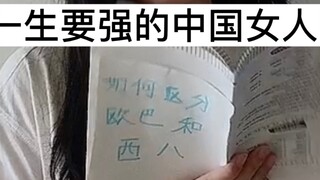 一生要强的中国女人
如何区分
欧巴和
西八